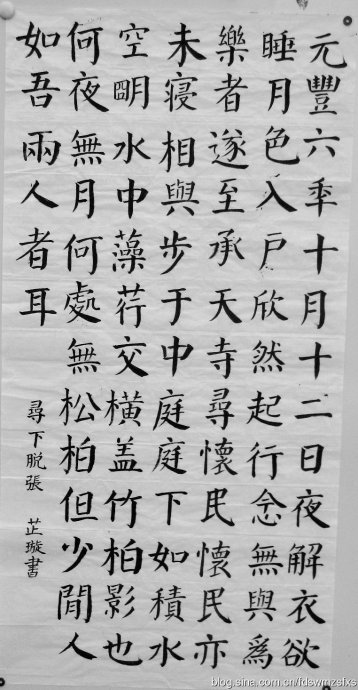 元豐六秊十月十二日夜解衣欲
睡月色入戶欣然起行念無與爲
樂者遂至承天寺尋懷民懷民亦
未寢相與步于中庭庭下如積水
空朙水中藻荇交橫盖竹柏影也
何夜無月何處無松柏但少閒人
如吾兩人者耳
尋下脱張 芷璇書
blog.sina.com.cn/fdswmzsfxs